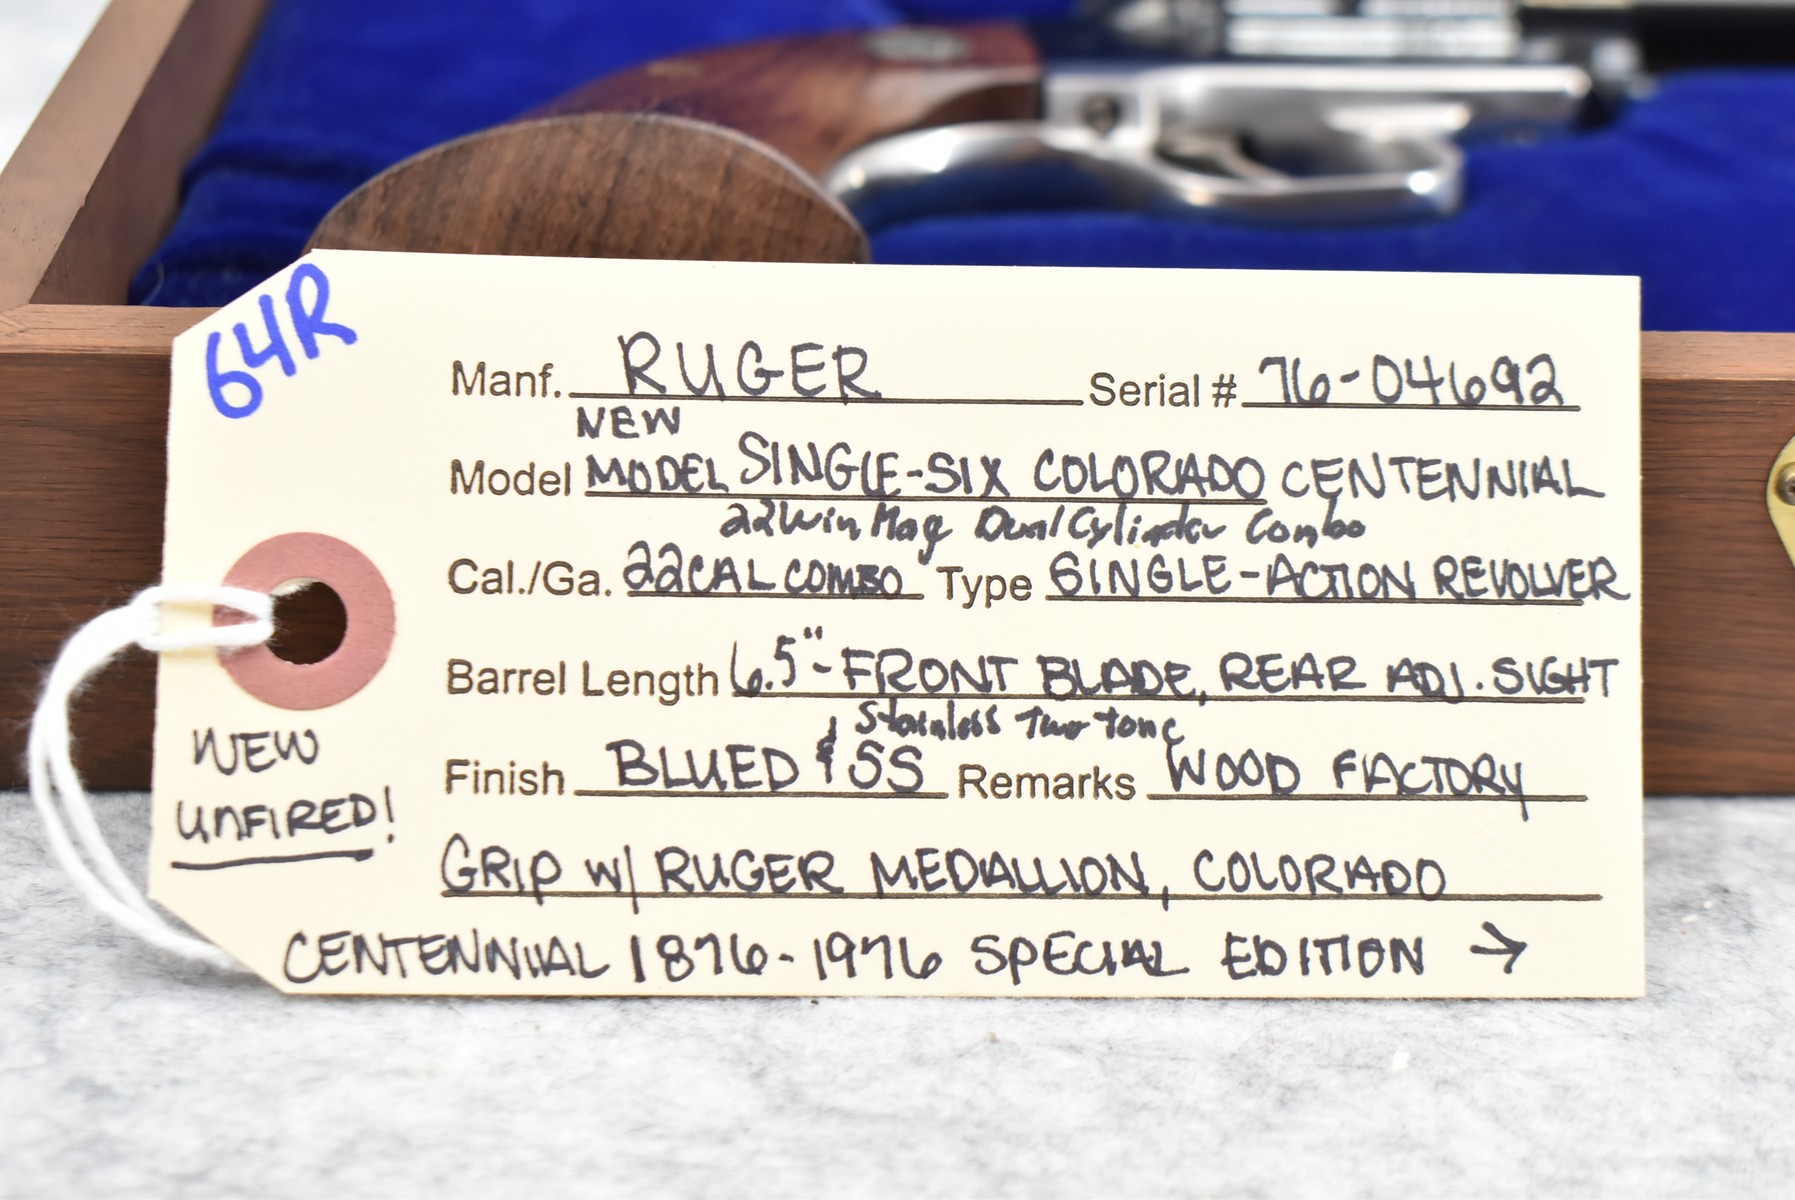 64R
Manf. RUGER Serial # 76-04692
NEW
Model MODEL SINGLE-SIX COLORADO CENTENNIAL
22 Win Mag Dual Cylinder Combo
Cal./Ga. 22CAL COMBO Type SINGLE-ACTION REVOLVER
Barrel Length 6.5"-FRONT BLADE, REAR ADJ. SIGHT
& Stainless Two tone
Finish BLUED & SS Remarks WOOD FACTORY
GRIP w/ RUGER MEDALLION, COLORADO
CENTENNIAL 1876-1976 SPECIAL EDITION →
NEW
UNFIRED!